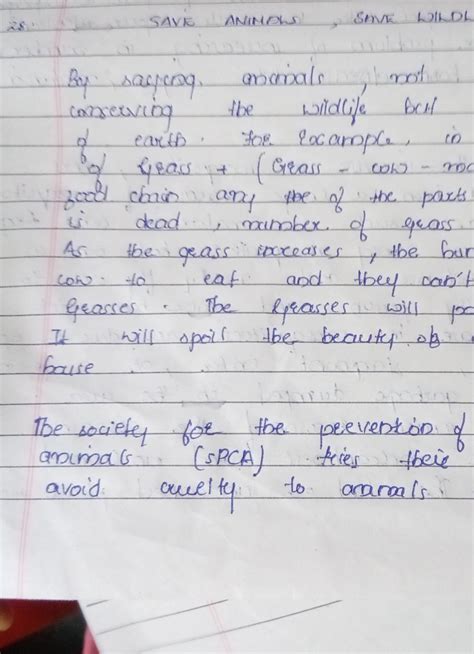 28. SAVE ANIMALS, SAVE WILDL
By saying animals, not
conserving the wildlife but
of earth. For Example, in
of Grass + (Grass - cow -
food chain any the of the parts
is dead, number of grass
As the grass increases, the bur
cow to eat and they can't
Grasses. The Grasses will
It will spoil the beauty of
house.
The society for the prevention of
animals (SPCA) tries their
avoid cruelty to animals.